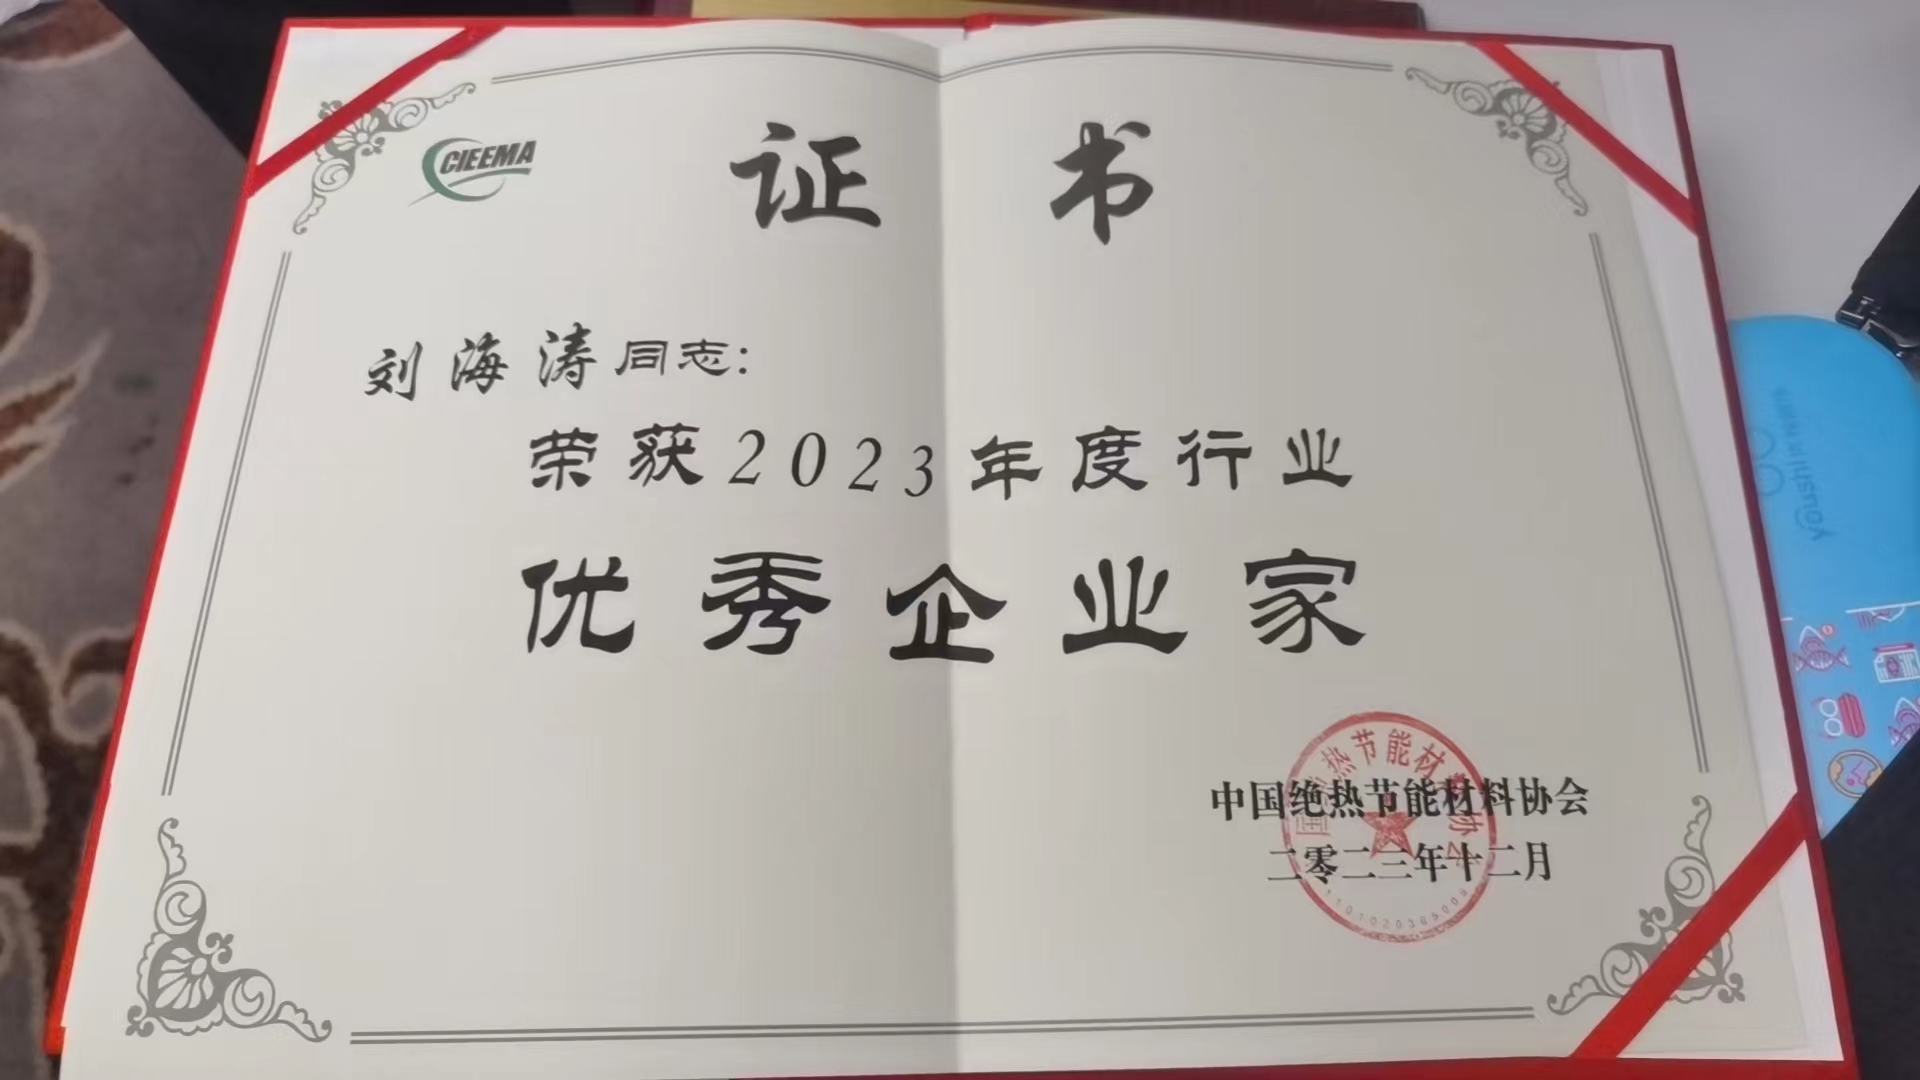 CIEEMA
证书
刘海涛同志：
荣获2023年度行业
优秀企业家
中国绝热节能材料协会
二零二三年十二月
youshili